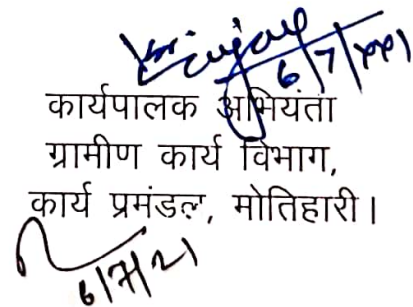 6/7/2021
कार्यपालक अभियंता
ग्रामीण कार्य विभाग,
कार्य प्रमंडल, मोतिहारी।
6/7/21